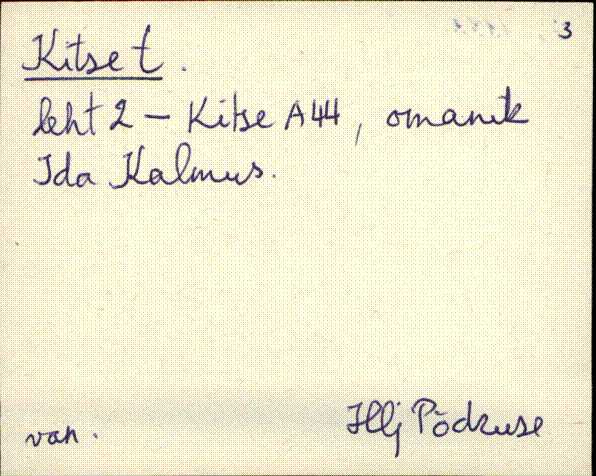 3
Kitse t.
leht 2 – Kitse A44, omanik
Ida Kalmus.
van.
Hlj Põdruse